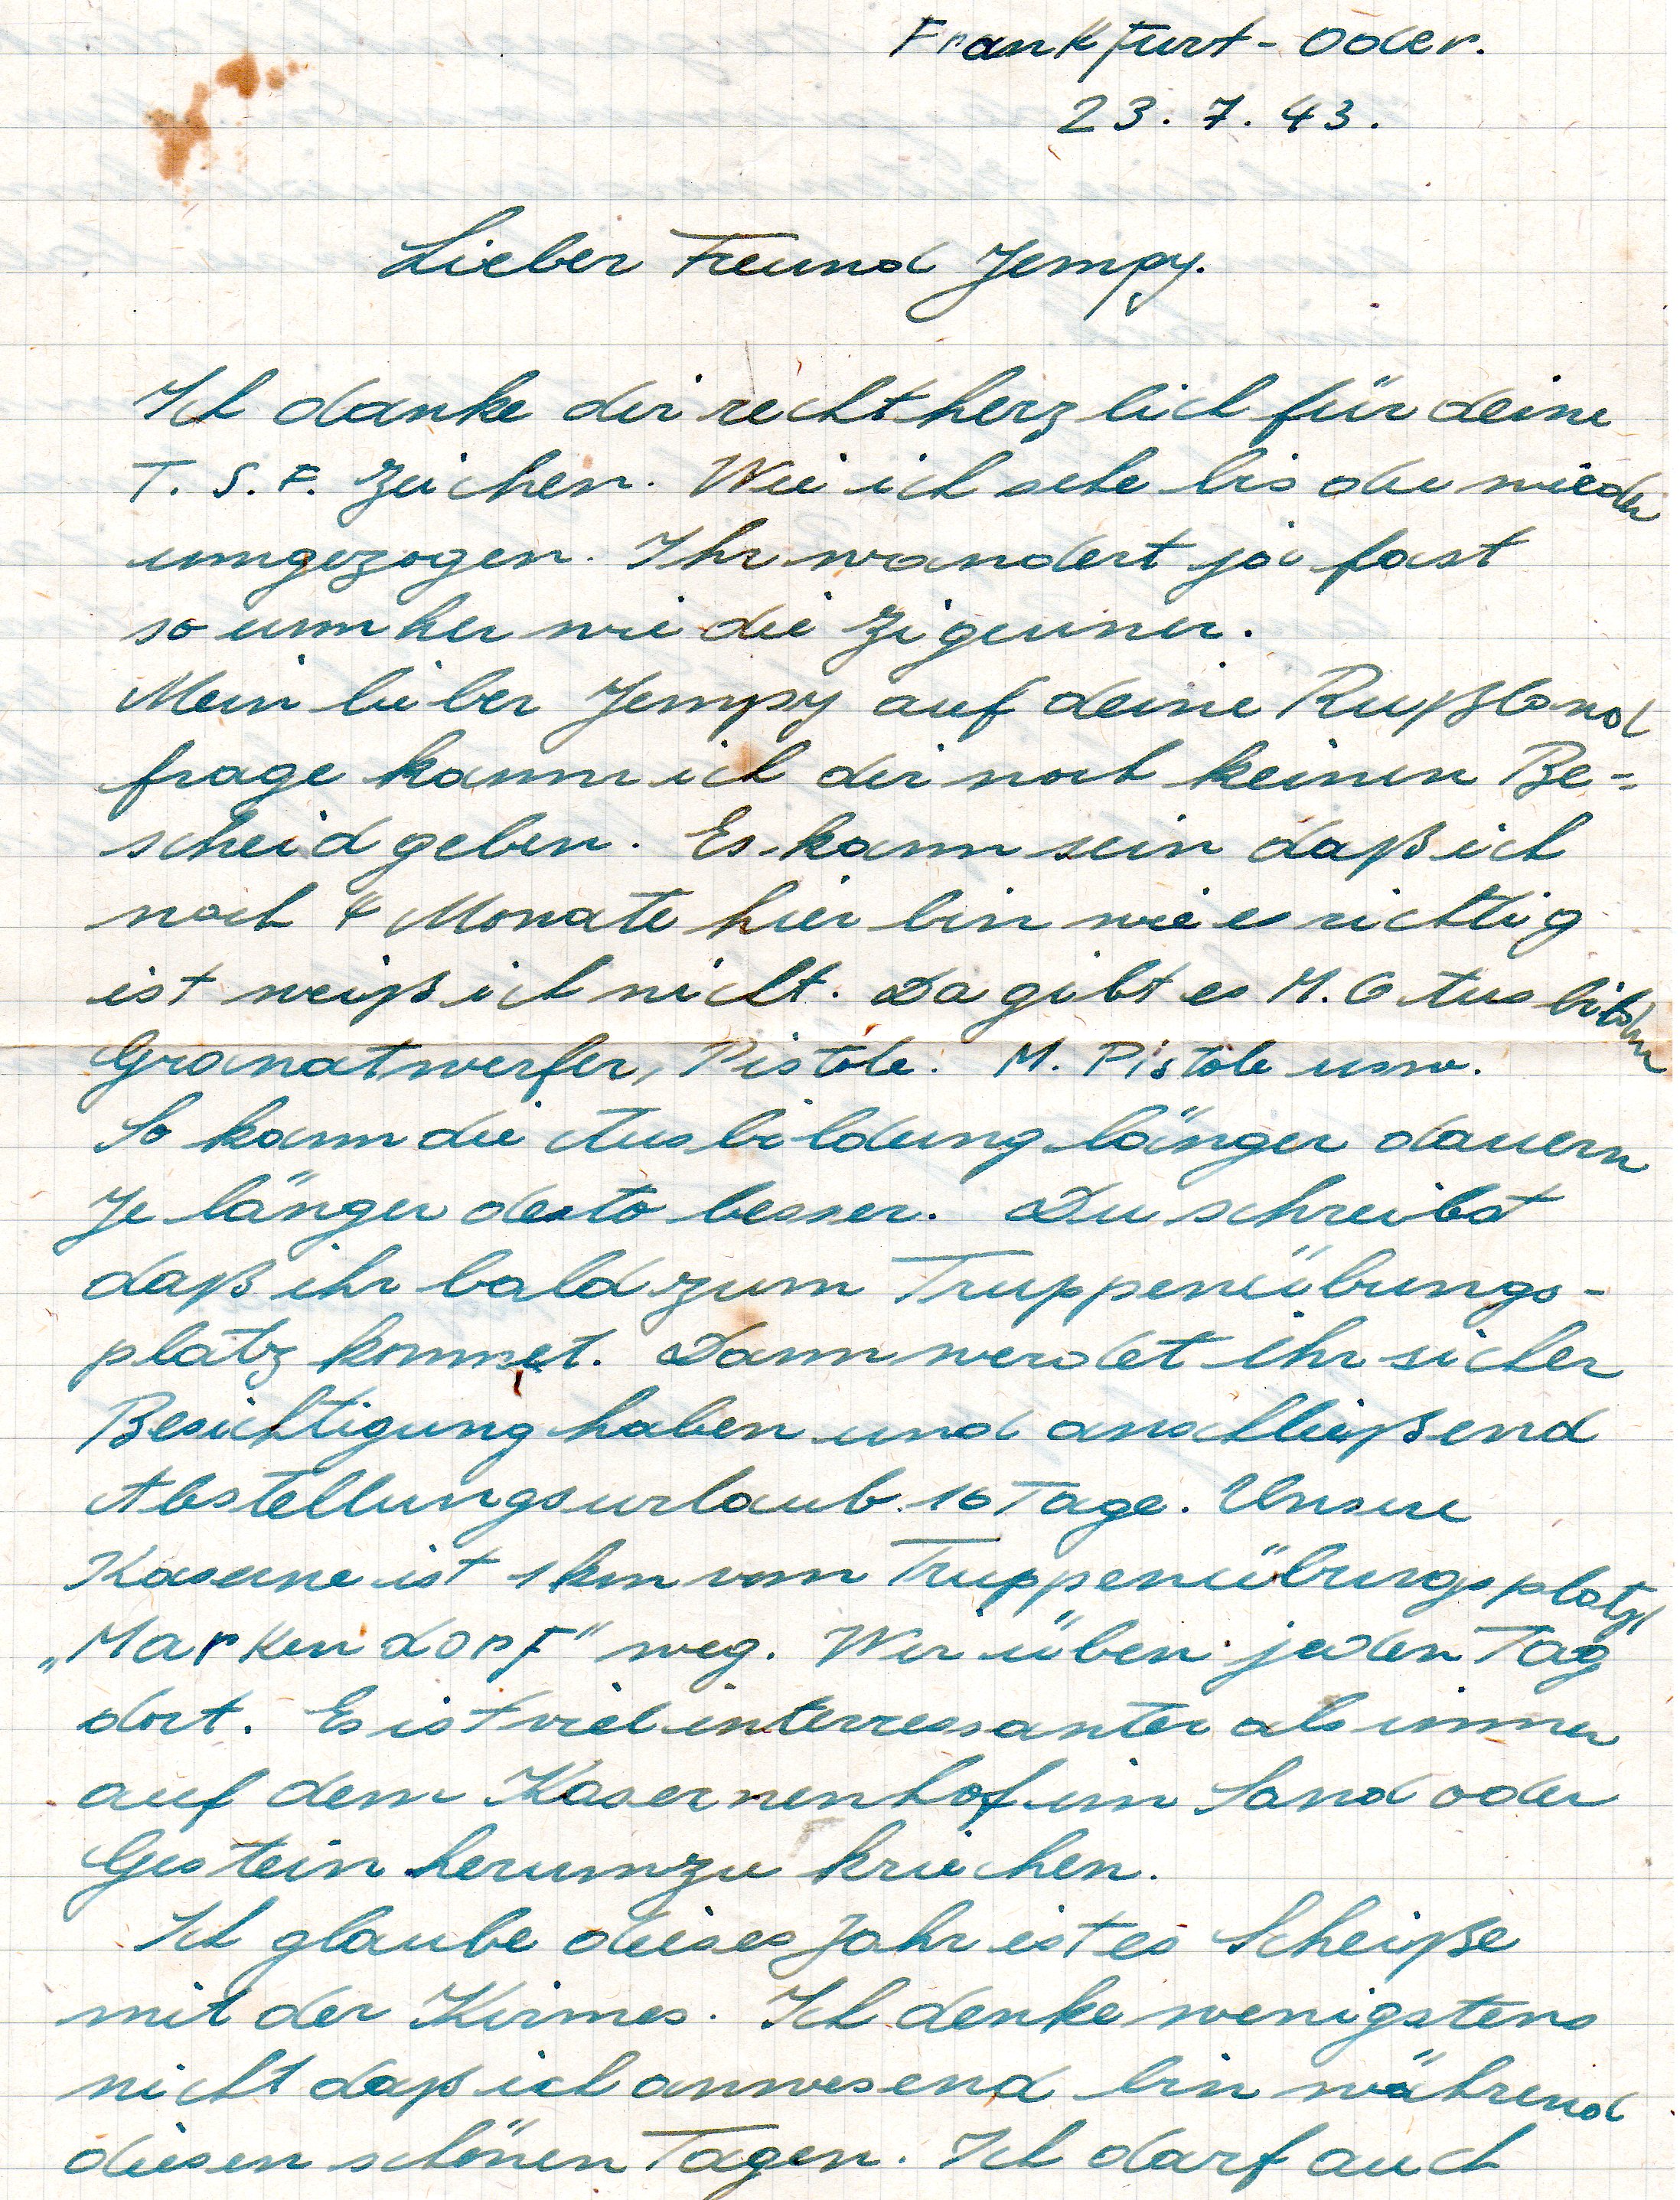 Frankfurt-Oder.
23. 7. 43.
Lieber Freund Jempy.
Ich danke dir recht herzlich für deine
T. S. F. Zeichen. Wie ich sehe bis du wieder
umgezogen. Ihr wandert ja fast
so umher wie die Zigeuner.
Mein lieber Jempy auf deine Rußland
frage kann ich dir noch keinen Be-
scheid geben. Es kann sein daß ich
noch 4 Monate hier bin wie es richtig
ist weiß ich nicht. Da gibt es M. G Ausbildung
Granatwerfer, Pistole. M. Pistole usw.
So kann die Ausbildung länger dauern
Je länger desto besser. Du schreibst
daß ihr bald zum Truppenübungs-
platz kommet. Dann werdet ihr sicher
Besichtigung haben und anschließend
Abstellungsurlaub 16 Tage. Unsere
Kaserne ist 1 km vom Truppenübungsplatz
„Markendorf" weg. Wir üben jeden Tag
dort. Es ist viel interressanter als immer
auf dem Kasernenhof im Sand oder
Gestein herumzu kriechen.
Ich glaube dieses Jahr ist es Scheiße
mit der Kirmes. Ich denke wenigstens
nicht daß ich anwesend bin während
diesen schönen Tagen. Ich darf auch